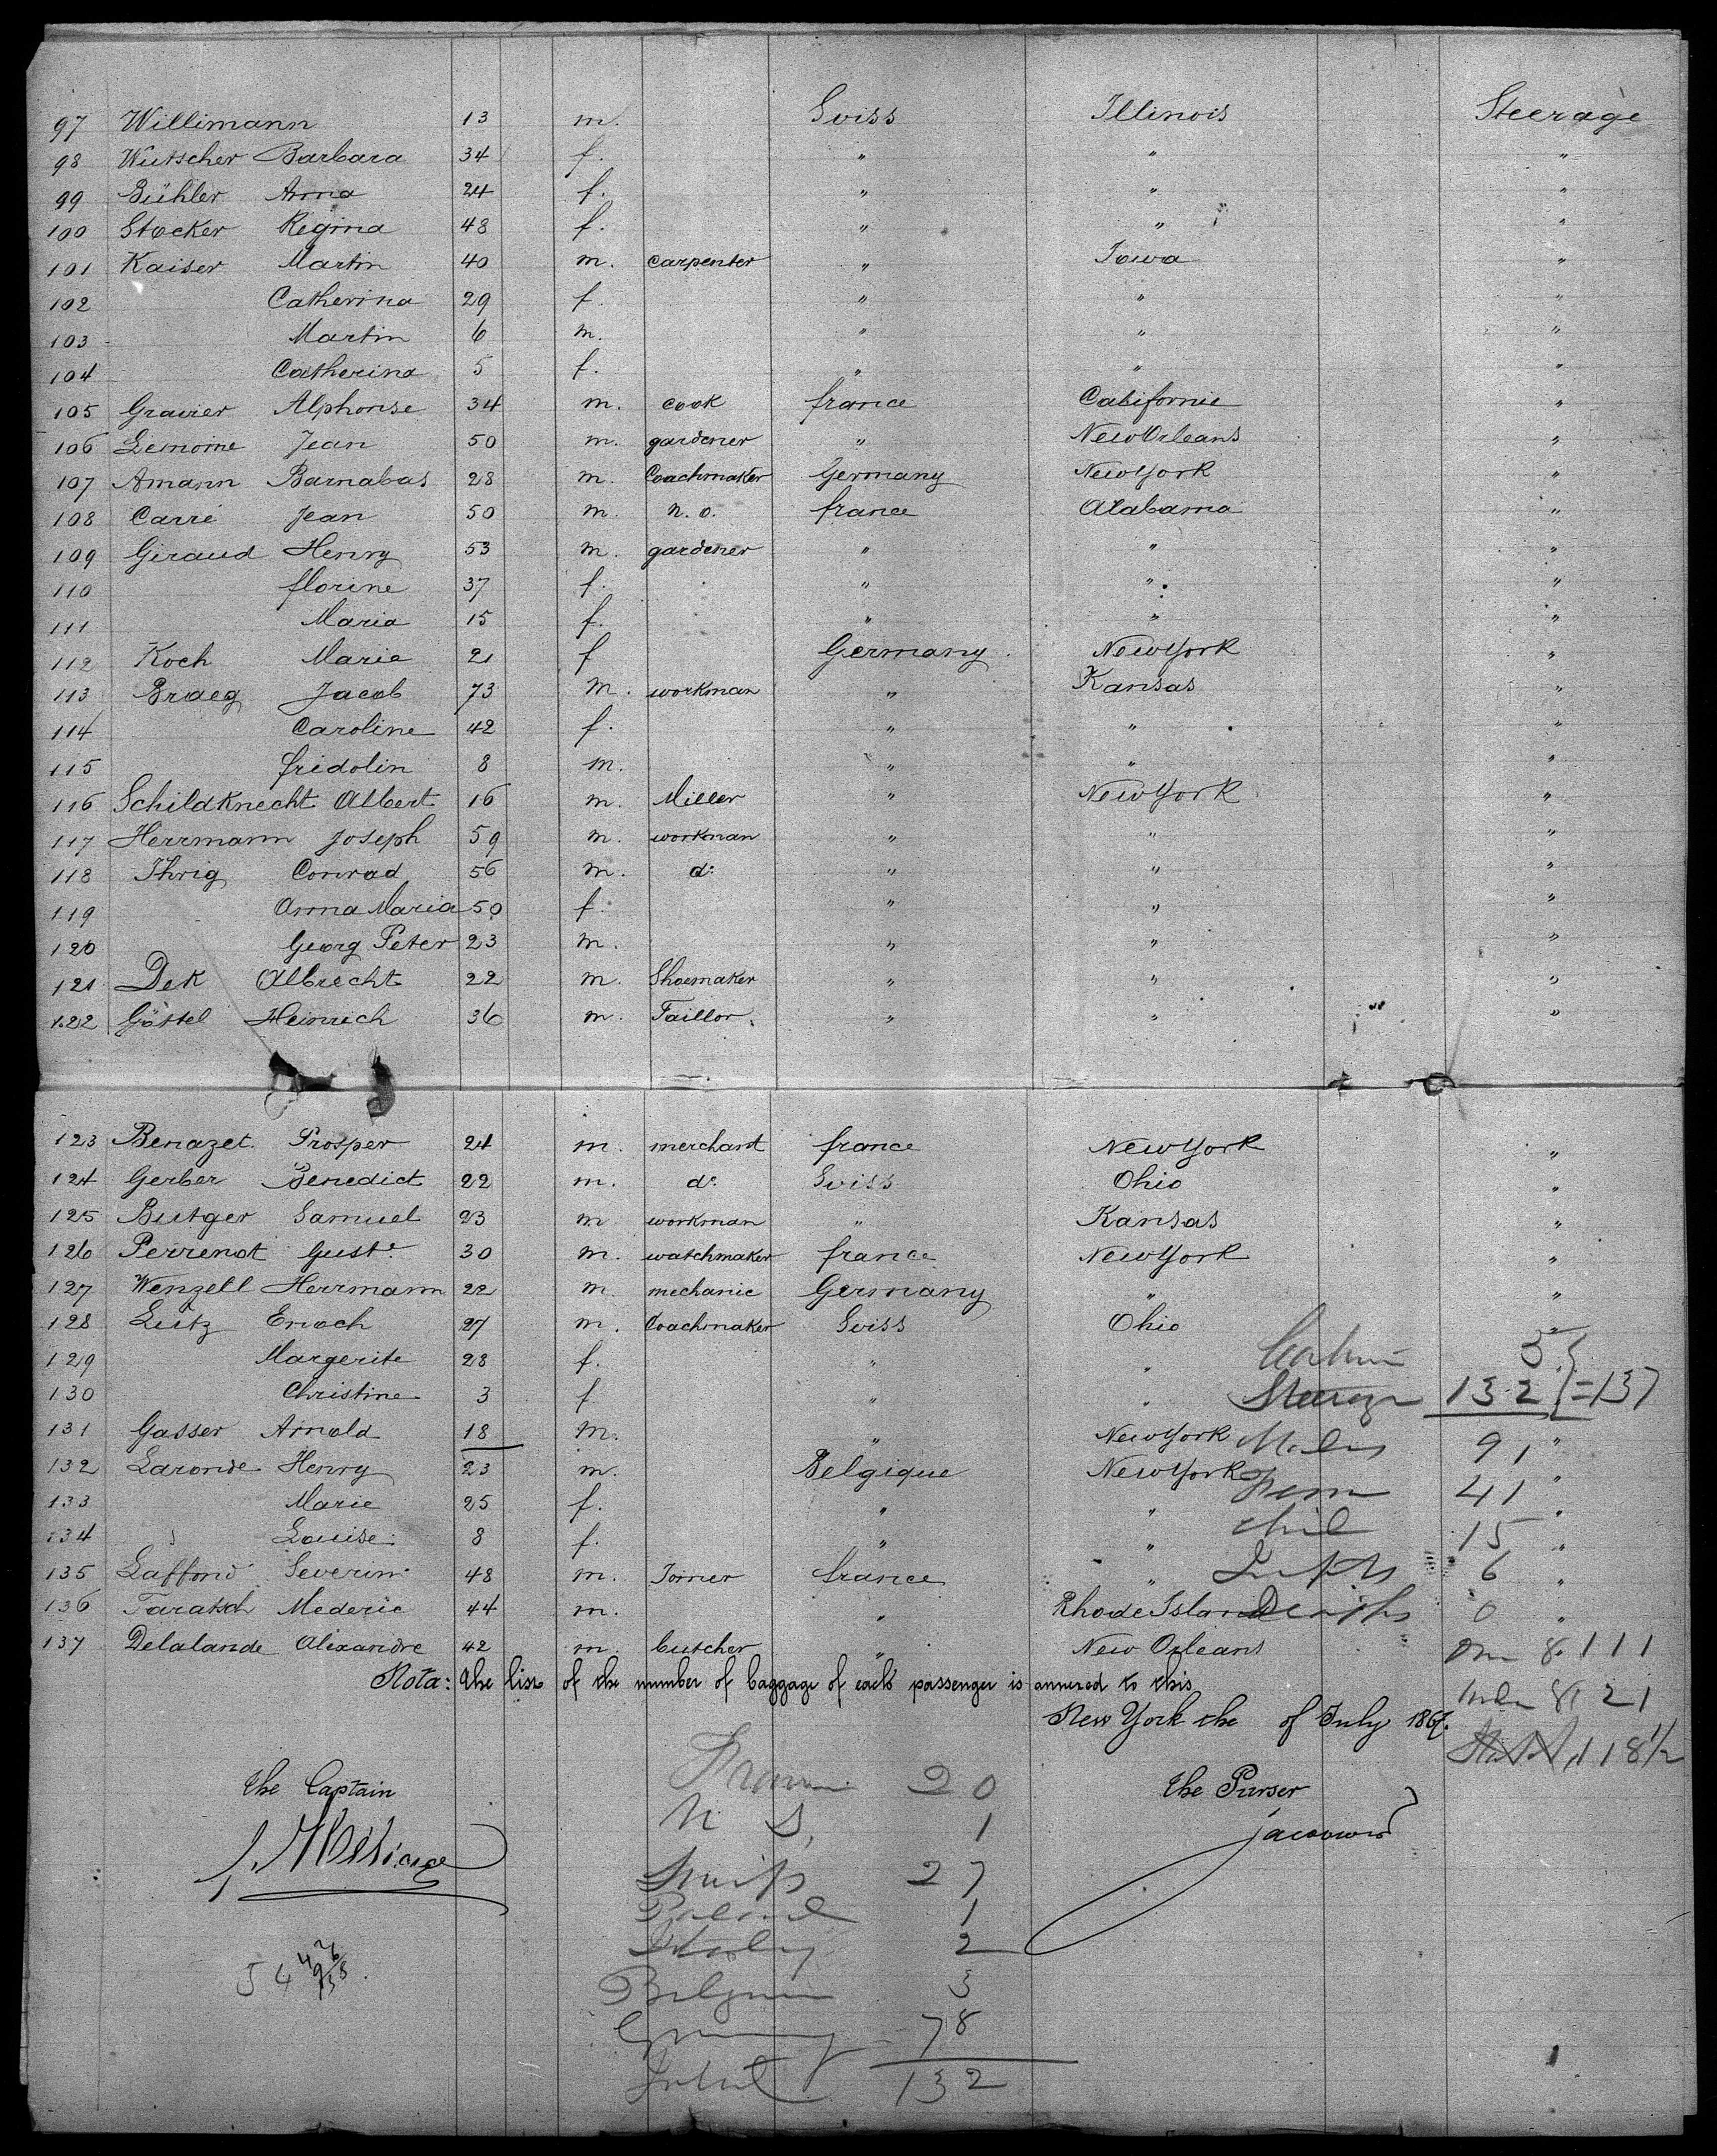 97 Willimann 13 m. Sviss Illinois Steerage
98 Wütscher Barbara 34 f. " " "
99 Bühler Anna 24 f. " " "
100 Stocker Regina 48 f. " " "
101 Kaiser Martin 40 m. carpenter " Iowa "
102 Catherina 29 f. " " "
103 Martin 6 m. " " "
104 Catherina 5 f. " " "
105 Gravier Alphonse 34 m. cook france Californie "
106 Lemoine Jean 50 m. gardener " New Orleans "
107 Amann Barnabas 28 m. Coachmaker Germany New York "
108 Carré Jean 50 m. n. o. france Alabama "
109 Giraud Henry 53 m. gardener " " "
110 florine 37 f. " " "
111 Maria 15 f. " " "
112 Koch Marie 21 f Germany New York "
113 Braeg Jacob 73 m. workman " Kansas "
114 Caroline 42 f. " " "
115 fridolin 8 m. " " "
116 Schildknecht Albert 16 m. Miller " New York "
117 Herrmann Joseph 59 m. workman " " "
118 Ihrig Conrad 56 m. do " " "
119 Anna Maria 50 f. " " "
120 Georg Peter 23 m. " " "
121 Dek Albrecht 22 m. Shoemaker " " "
122 Göttel Heinrich 36 m. Taillor " " "
123 Benazet Prosper 24 m. merchant france New York "
124 Gerber Benedict 22 m. do Sviss Ohio "
125 Butger Samuel 23 m. workman " Kansas "
126 Perrenot Guste 30 m. watchmaker france New York "
127 Wenzell Herrmann 22 m. mechanic Germany " "
128 Lutz Enoch 27 m. Coachmaker Sviss Ohio
129 Margerite 28 f. " " Cabin 5
130 Christine 3 f " " Steerage 132 } = 137
131 Gasser Arnold 18 m. " New York Males 91 "
132 Laronde Henry 23 m. Belgique New York Fem 41 "
133 Marie 25 f. " " Chil 15 "
134 Louise 8 f. " " 6 "
135 Laffond Severin 48 m. Joiner france " "
136 Taratsch Mederic 44 m. " Rhode Island Deaths 0 "
137 Delalande Alixandre 42 m. butcher " New Orleans
Nota: the list of the number of baggage of each passenger is annexed to this
Over 8. 111
New York the of July 1867.
Under 8 21
118½
the Captain
the Purser
France 20
U S, 1
Swiss 27
Poland 1
Italy 2
Belgium 3
Germany 78
Total 132